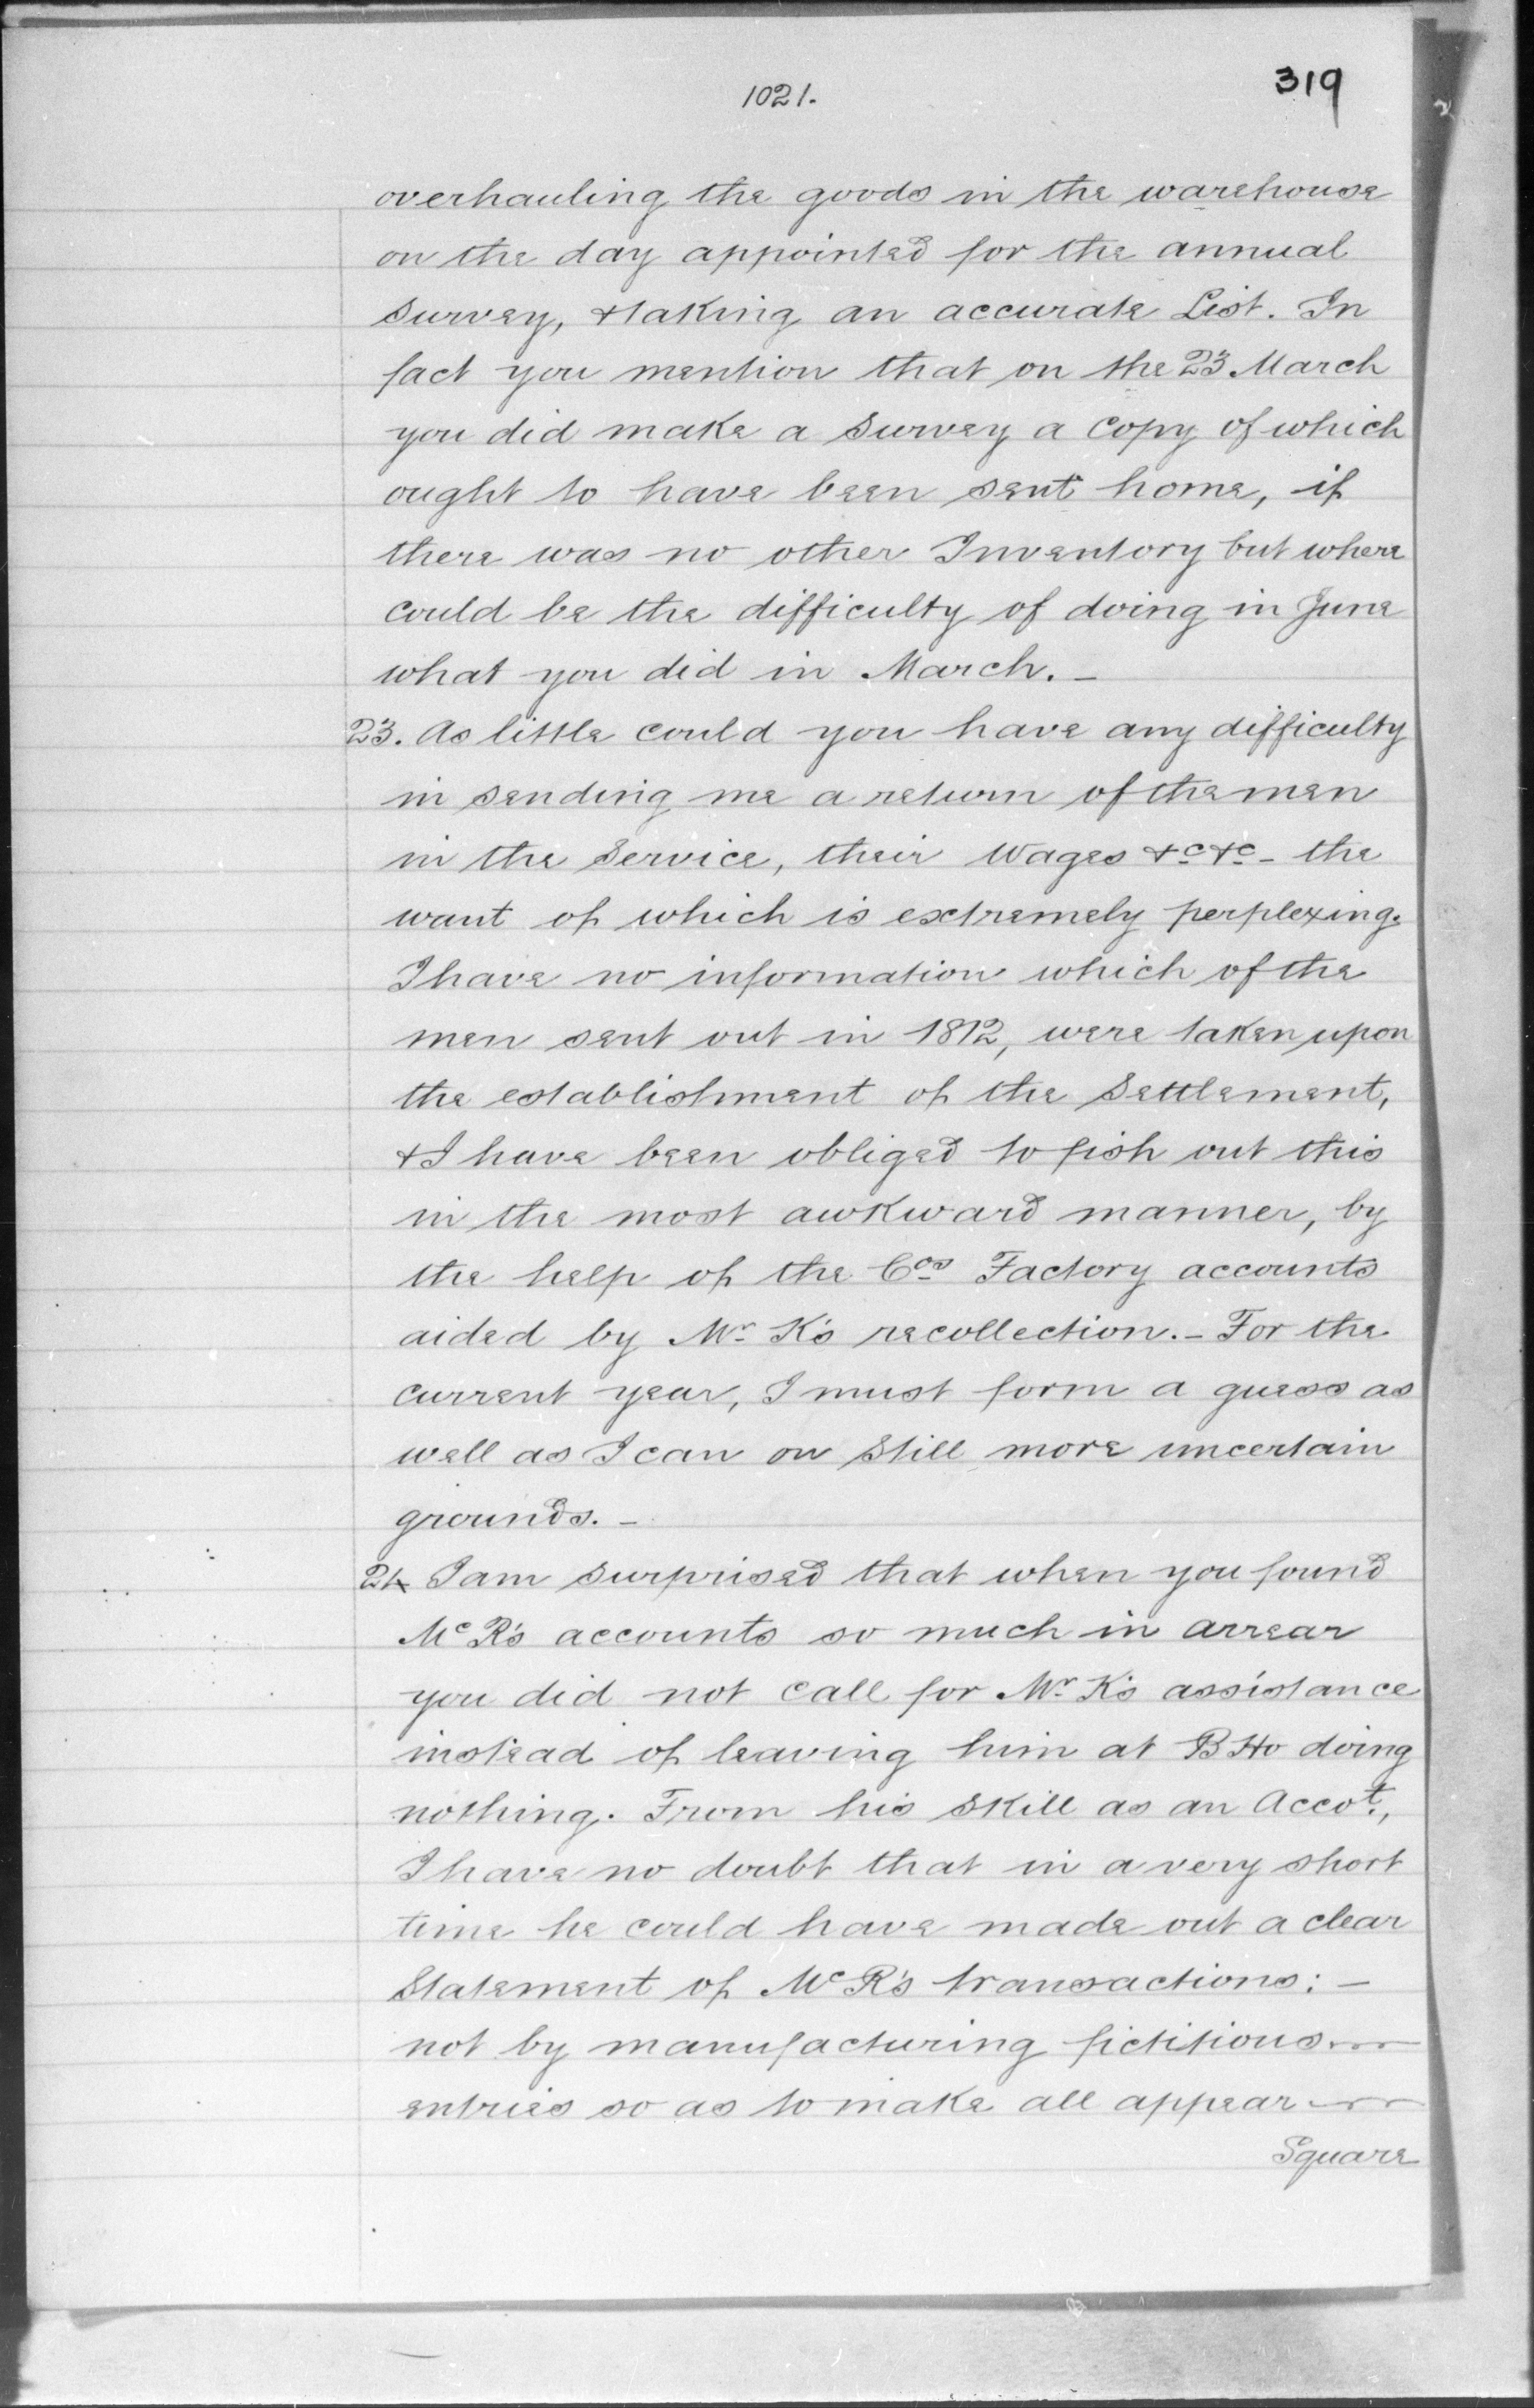 1021.
319
overhauling the goods in the warehouse
on the day appointed for the annual
survey, & taking an accurate List. In
fact you mention that on the 23 March
you did make a survey a copy of which
ought to have been sent home, if
there was no other Inventory but where
could be the difficulty of doing in June
what you did in March. -
23. As little could you have any difficulty
in sending me a return of the men
in the Service, their Wages &c &c - the
want of which is extremely perplexing.
I have no information which of the
men sent out in 1812, were taken upon
the establishment of the Settlement,
& I have been obliged to fish out this
in the most awkward manner, by
the help of the Cos Factory accounts
aided by Mr K's recollection. - For the
current year, I must form a guess as
well as I can on still more uncertain
grounds. -
24 I am surprised that when you found
Mc R's accounts so much in arrear
you did not call for Mr K's assistance
instead of leaving him at B Ho doing
nothing. From his skill as an Accot.,
I have no doubt that in a very short
time he could have made out a clear
Statement of Mc R's transactions: -
not by manufacturing fictitious
entries so as to make all appear
Square